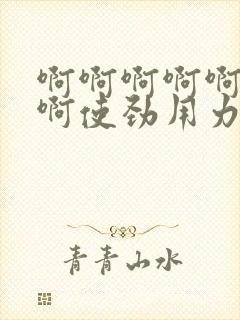 啊啊啊啊啊
啊使劲用力
青青山水